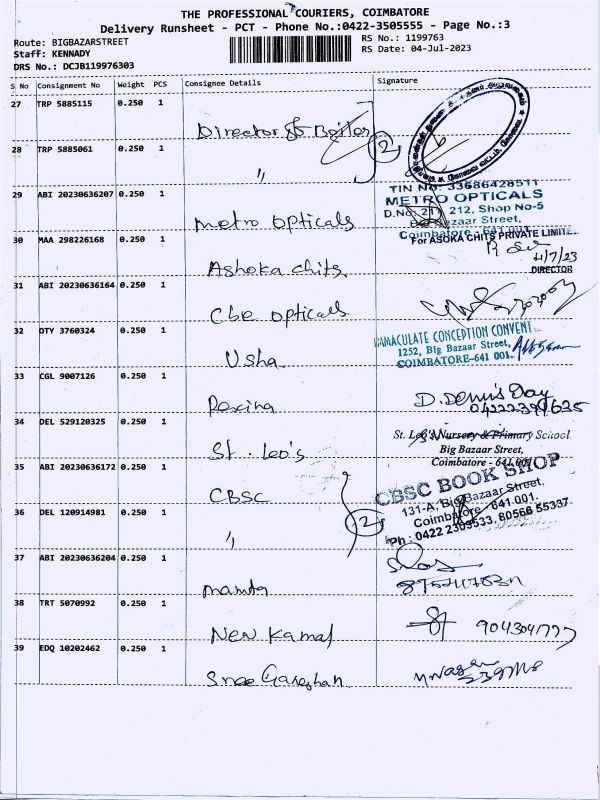 THE PROFESSIONAL COURIERS, COIMBATORE
Delivery Runsheet - PCT - Phone No.:0422-3505555 - Page No.:3
Route: BIGBAZARSTREET RS No.: 1199763
Staff: KENNADY RS Date: 04-Jul-2023
DRS No.: DCJB119976303
S No Consignment No Weight PCS Consignee Details Signature
27 TRP 5885115 0.250 1
Director of Boiler
28 TRP 5885061 0.250 1 2
"
TIN No. 33686428511
29 ABI 20230636207 0.250 1 METRO OPTICALS
D.No. 211, 212, Shop No-5
metro opticals Bazaar Street,
Coimbatore - 641 001.
30 MAA 298226168 0.250 1 For ASOKA CHITS PRIVATE LIMITE
4/7/23
Ashoka chits DIRECTOR
31 ABI 20230636164 0.250 1
Cbe opticals
32 DTY 3760324 0.250 1 IMMACULATE CONCEPTION CONVENT
1252, Big Bazaar Street,
Usha COIMBATORE-641 001.
33 CGL 9007126 0.250 1
D. Dennis Day
34 DEL 529120325 0.250 1
St. Leo's Nursery & Primary School
St. Leo's Big Bazaar Street,
Coimbatore - 641 001
35 ABI 20230636172 0.250 1
CBSC CBSC BOOK SHOP
131-A, Big Bazaar Street,
36 DEL 120914981 0.250 1 2 Coimbatore - 641 001.
" Ph : 0422 2309533, 60566 55337
37 ABI 20230636204 0.250 1
mamta
38 TRT 5070992 0.250 1
New Kamal
39 EDQ 10202462 0.250 1
Sree Ganeshan